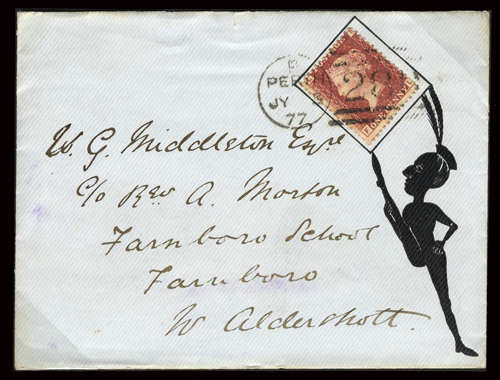 B
PERTH
JY
77
28
W. G. Middleton Esqre
c/o Rev A. Morton
Farnboro School
Farnboro
Nr Aldershott.